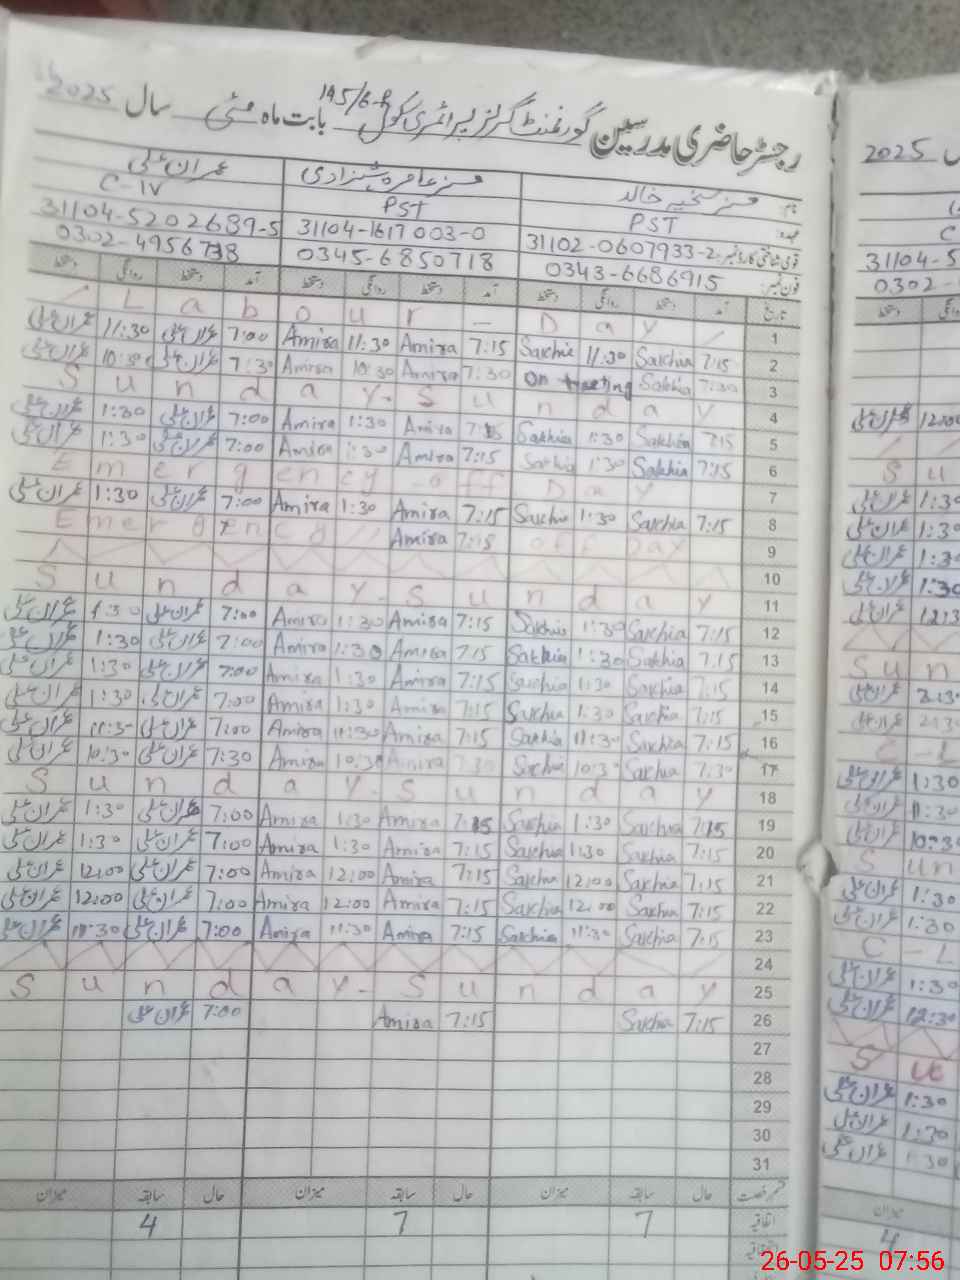 رجسٹر حاضری مدرسین گورنمنٹ گرلز پرائمری سکول 195/6-R بابت ماہ مئی سال 2025
نام: مسز سخیر خالد مسز عامرہ شہزادی عمران علی
عہدہ: PST PST C-IV
قومی شناختی کارڈ نمبر: 31102-0607933-2 31104-1617003-0 31104-5202689-5
فون نمبر: 0343-6686915 0345-6850718 0302-4956738
تاریخ آمد دستخط روانگی دستخط آمد دستخط روانگی دستخط آمد دستخط روانگی دستخط
1 Labour - Day
2 7:15 Sakhia 11:30 Sakhia 7:15 Amira 11:30 Amira 7:00 عمران علی 11:30 عمران علی
3 7:30 Sakhia on meeting 7:30 Amira 10:30 Amira 7:30 عمران علی 10:30 عمران علی
4 Sunday - Sunday
5 7:15 Sakhia 1:30 Sakhia 7:15 Amira 1:30 Amira 7:00 عمران علی 1:30 عمران علی
6 7:15 Sakhia 1:30 Sakhia 7:15 Amira 1:30 Amira 7:00 عمران علی 1:30 عمران علی
7 Emergency off Day
8 7:15 Sakhia 1:30 Sakhia 7:15 Amira 1:30 Amira 7:00 عمران علی 1:30 عمران علی
9 Emergency Amira 7:15 off Day
10
11 Sunday - Sunday
12 7:15 Sakhia 1:30 Sakhia 7:15 Amira 1:30 Amira 7:00 عمران علی 1:30 عمران علی
13 7:15 Sakhia 1:30 Sakhia 7:15 Amira 1:30 Amira 7:00 عمران علی 1:30 عمران علی
14 7:15 Sakhia 1:30 Sakhia 7:15 Amira 1:30 Amira 7:00 عمران علی 1:30 عمران علی
15 7:15 Sakhia 1:30 Sakhia 7:15 Amira 1:30 Amira 7:00 عمران علی 1:30 عمران علی
16 7:15 Sakhia 11:30 Sakhia 7:15 Amira 11:30 Amira 7:00 عمران علی 11:30 عمران علی
17 7:30 Sakhia 10:30 Sakhia 7:30 Amira 10:30 Amira 7:30 عمران علی 10:30 عمران علی
18 Sunday - Sunday
19 7:15 Sakhia 1:30 Sakhia 7:15 Amira 1:30 Amira 7:00 عمران علی 1:30 عمران علی
20 7:15 Sakhia 1:30 Sakhia 7:15 Amira 1:30 Amira 7:00 عمران علی 1:30 عمران علی
21 7:15 Sakhia 12:00 Sakhia 7:15 Amira 12:00 Amira 7:00 عمران علی 12:00 عمران علی
22 7:15 Sakhia 12:00 Sakhia 7:15 Amira 12:00 Amira 7:00 عمران علی 12:00 عمران علی
23 7:15 Sakhia 11:30 Sakhia 7:15 Amira 11:30 Amira 7:00 عمران علی 11:30 عمران علی
24
25 Sunday - Sunday
26 7:15 Sakhia 7:15 Amira 7:00 عمران علی
27
28
29
30
31
قسم رخصت حال سابقہ میزان حال سابقہ میزان حال سابقہ میزان
اتفاقیہ 7 7 4
2025
31104-5
0302-
عمران علی 12:00
S u
عمران علی 1:30
عمران علی 1:30
عمران علی 1:30
عمران علی 1:30
عمران علی 12:3
Sun
C-L
عمران علی 1:30
عمران علی 11:30
عمران علی 10:30
Sun
عمران علی 1:30
عمران علی 1:30
C-L
عمران علی 1:30
عمران علی 12:30
Su
عمران علی 1:30
عمران علی 1:30
عمران علی 1:30
میزان
4
26-05-25 07:56